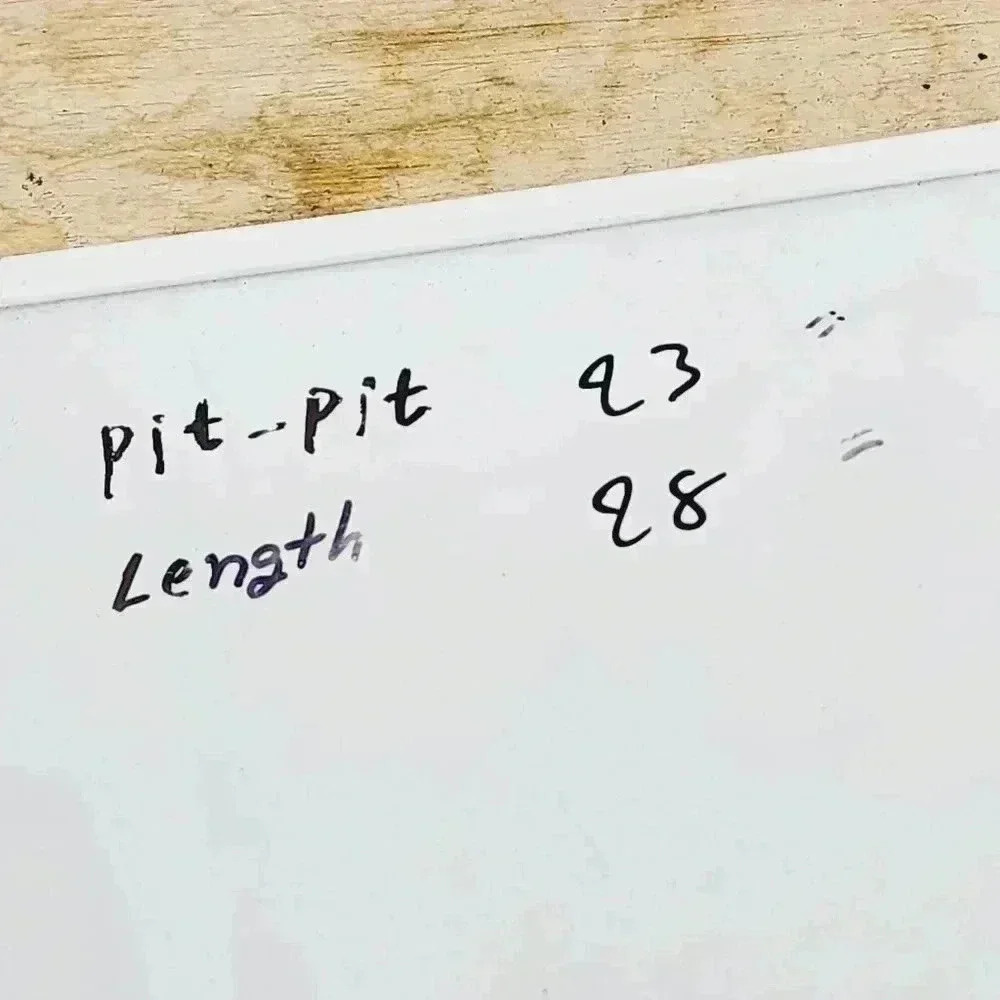 Pit-Pit 23 "
Length 28 "